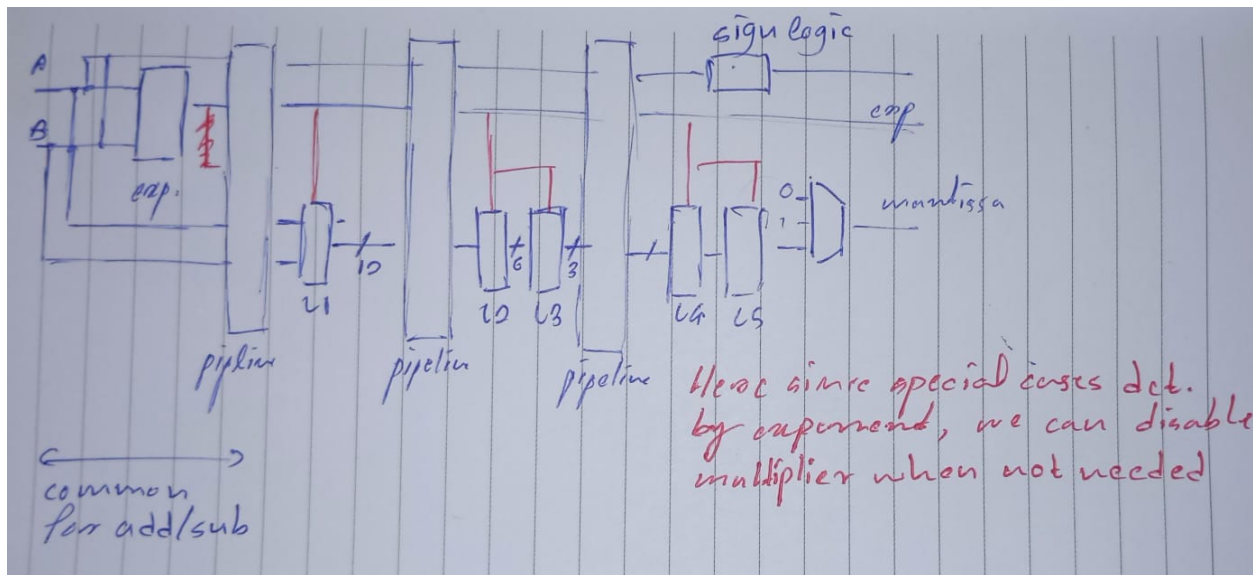 sign logic
A
B
exp.
exp
0
1
mantissa
10
6
3
L1
L2
L3
L4
L5
pipline
pipeline
pipeline
Here since special cases det.
by exponend, we can disable
multiplier when not needed
common
for add/sub